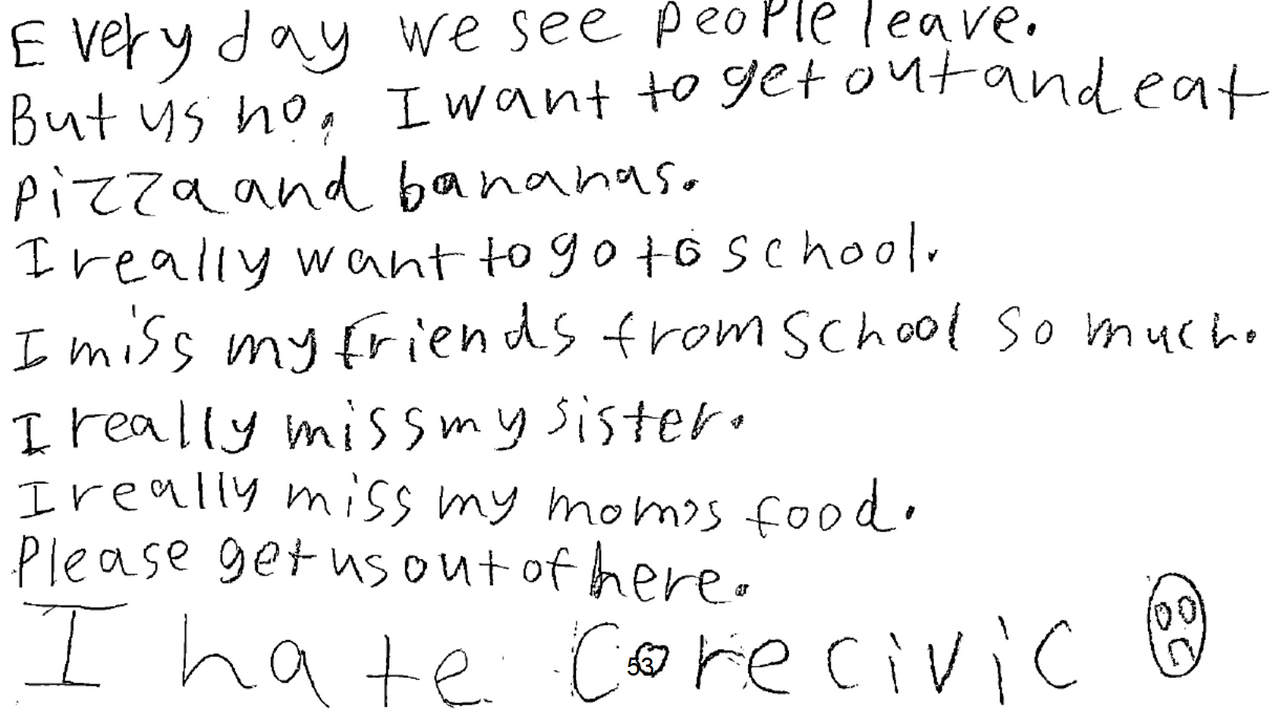 Every day we see people leave.
But us no. I want to get out and eat
pizza and bananas.
I really want to go to school.
I miss my friends from school so much.
I really miss my sister.
I really miss my mom's food.
Please get us out of here.
I hate Corecivic
53